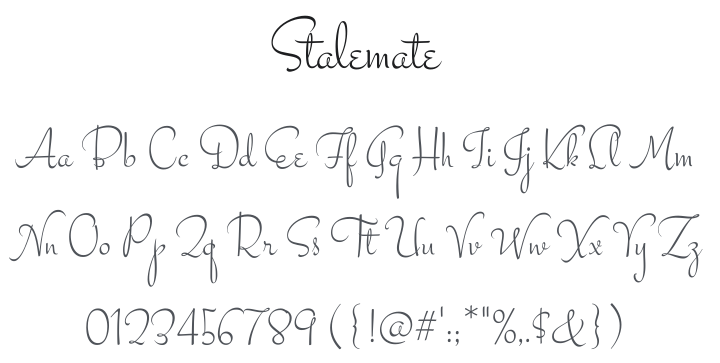 Stalemate
Aa Bb Cc Dd Ee Ff Gg Hh Ii Jj Kk Ll Mm
Nn Oo Pp Qq Rr Ss Tt Uu Vv Ww Xx Yy Zz
0123456789 ({!@#':;*"%,.$&})